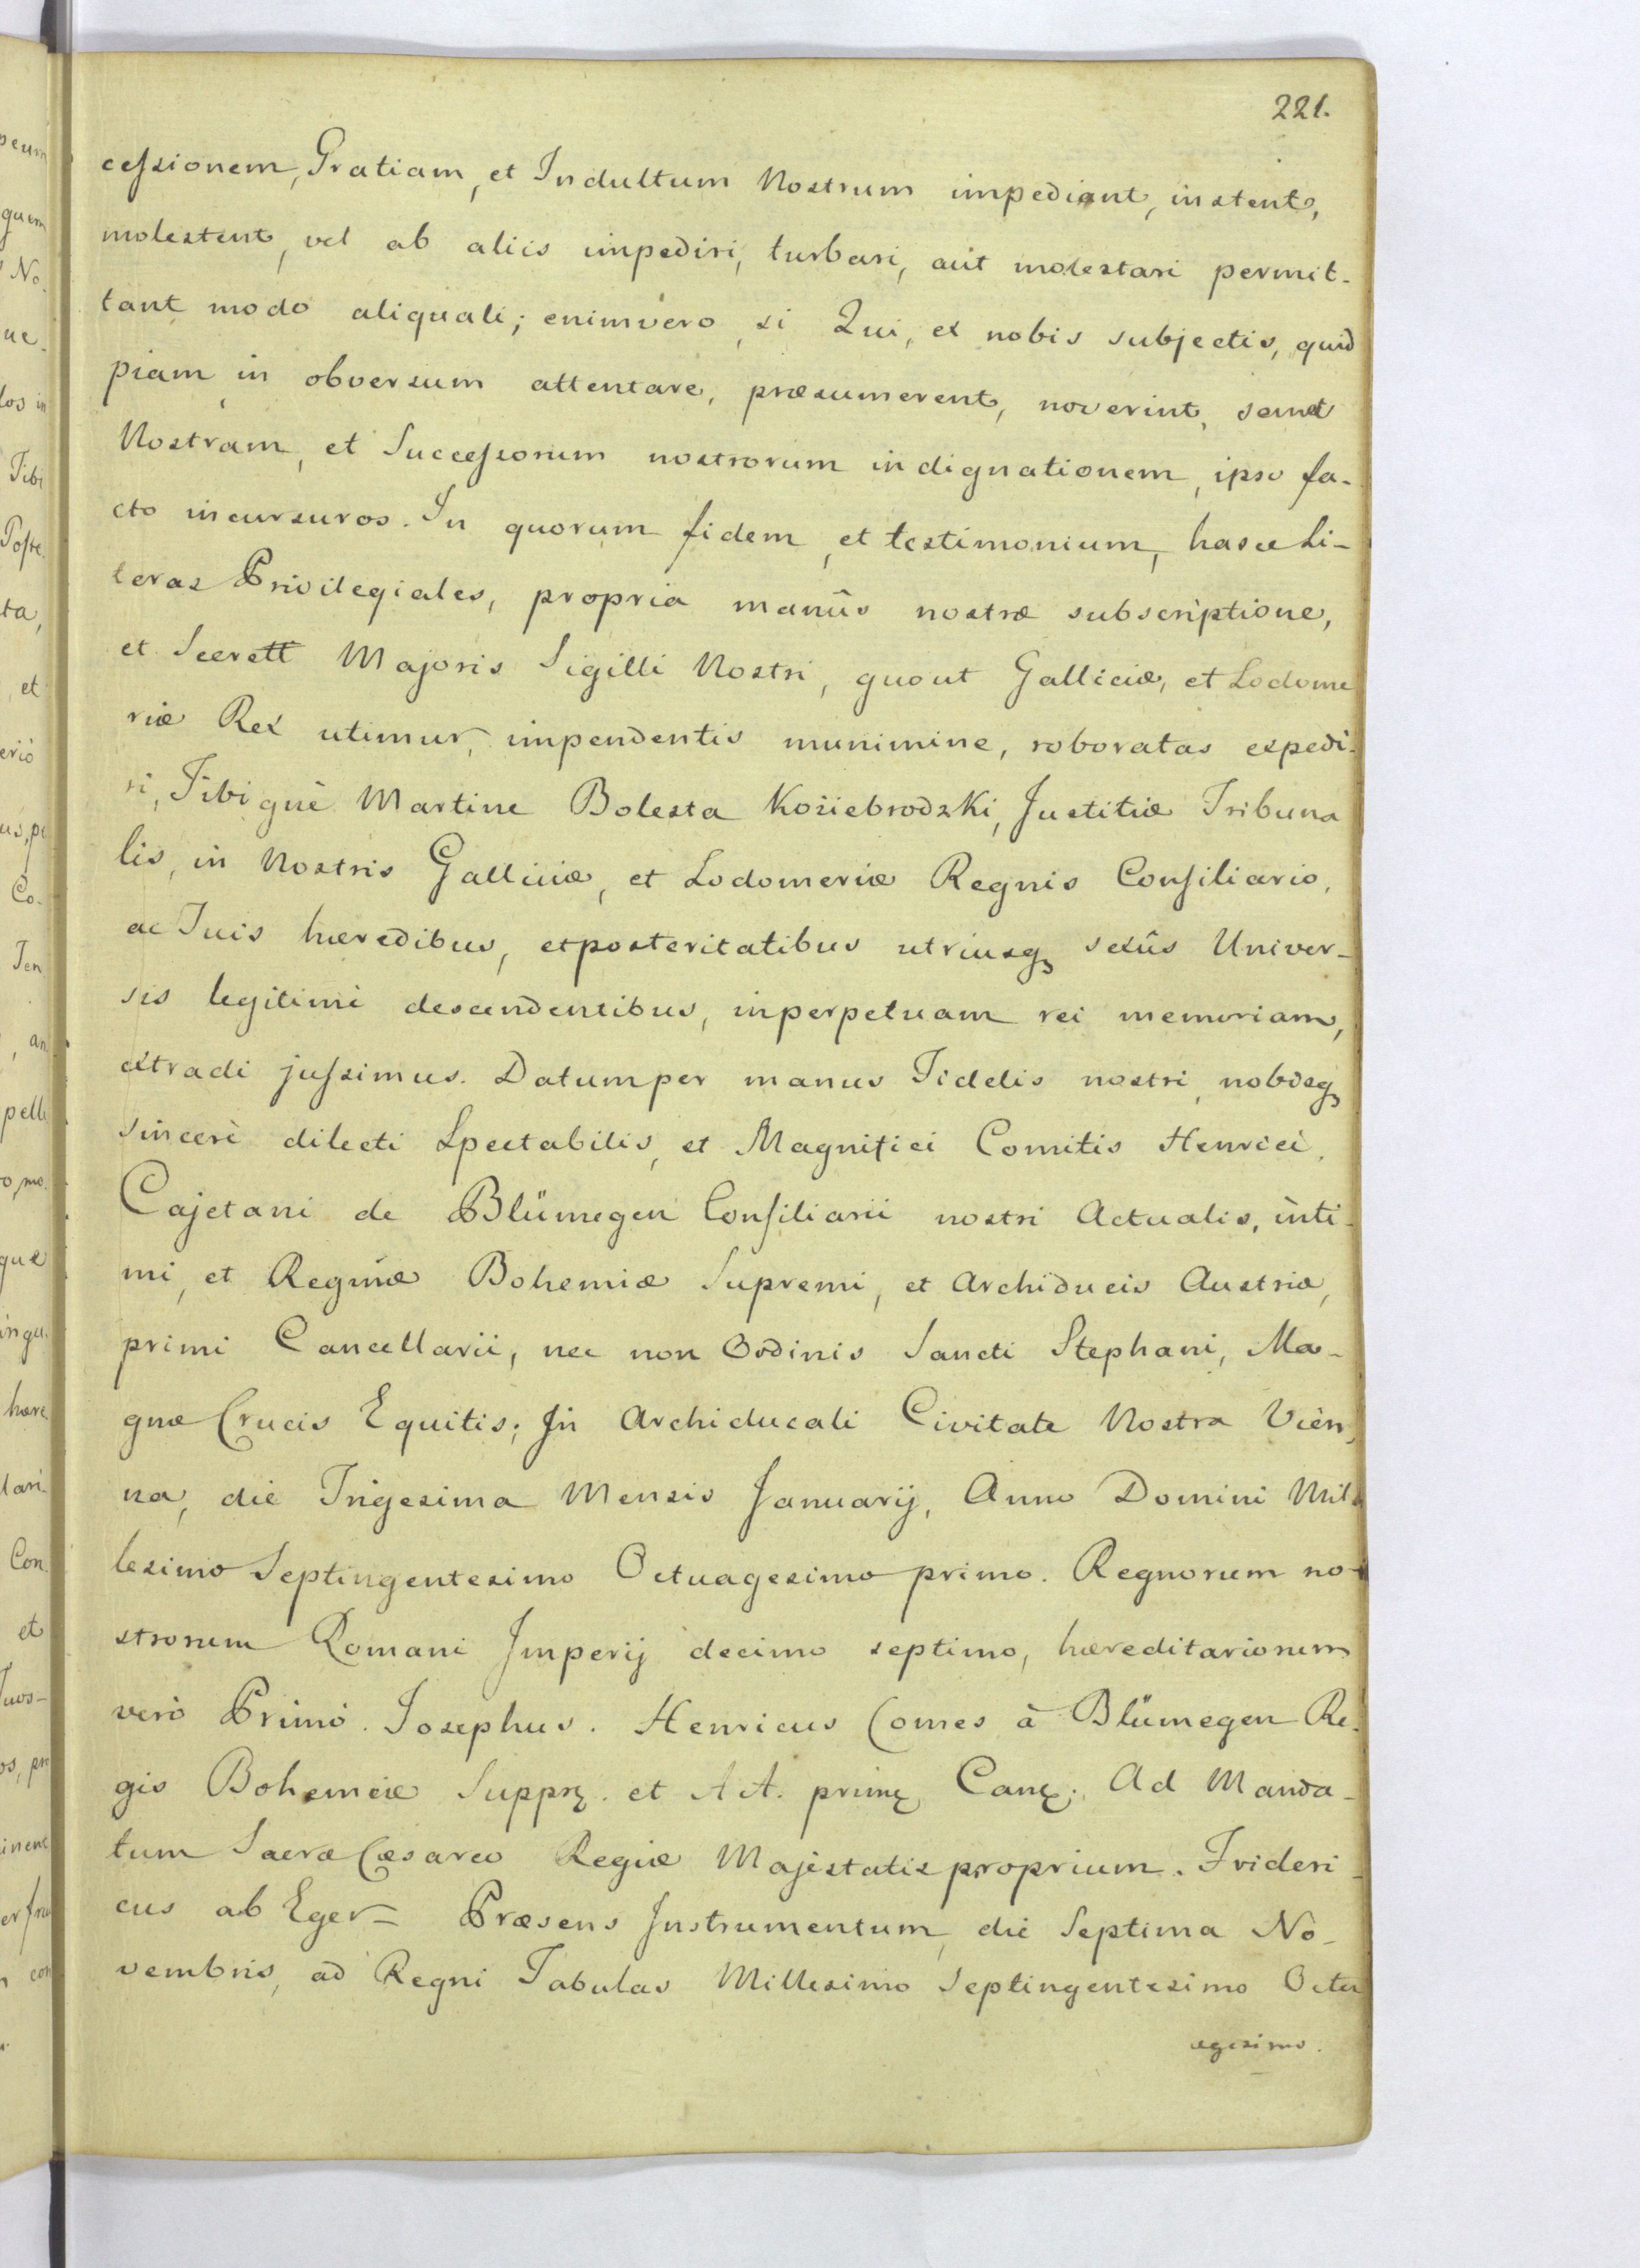 221.
cessionem, Gratiam, et Indultum Nostrum impediant, instent,
molestent, vel ab aliis impediri, turbari, aut molestari permit-
tant modo aliquali; enimvero, si Qui, ex nobis subjectis, quid
piam in obversum attentare, præsumerent, noverint, semet
Nostram, et Successorum nostrorum indignationem, ipso fa-
cto incursuros. In quorum fidem, et testimonium, hasce Li-
teras Privilegiales, propria manûs nostræ subscriptione,
et Secrett Majoris Sigilli Nostri, quout Galliciæ, et Lodome
riæ Rex utimur, impendentis munimine, roboratas expedi-
ri, Tibique Martine Bolesta Koziebrodzki, Justitiæ Tribuna
lis, in Nostris Galliciæ, et Lodomeriæ Regnis Consiliario,
ac Tuis hæredibus, etposteritatibus utriusq sexûs Univer-
sis legitimè descendentibus, inperpetuam rei memoriam,
extradi jussimus. Datumper manus Fidelis nostri, nobisq
sincerè dilecti Spectabilis, et Magnifici Comitis Henrici,
Cajetani de Blümegen Consiliarii nostri Actualis, inti-
mi, et Regniæ Bohemiæ Supremi, et Archiducis Austriæ,
primi Cancellarii, nec non Ordinis Sancti Stephani, Ma-
gnæ Crucis Equitis; In Archiducali Civitate Nostra Vien,
na, die Trigesima Mensis Januarij, Anno Domini Mil-
lesimo Septingentesimo Octuagesimo primo. Regnorum no-
strorum Romani Imperij decimo septimo, hæreditariorum
verò Primò. Josephus. Henricus Comes à Blümegen Re-
gis Bohemciæ Suppr. et A A. prim Canc. Ad Manda-
tum Sacræ Cæsareo Regiæ Majestatis proprium. Frideri-
cus ab Eger = Præsens Instrumentum, die Septima No-
vembris, ad Regni Tabulas Millesimo Septingentesimo Octu
agesimo.